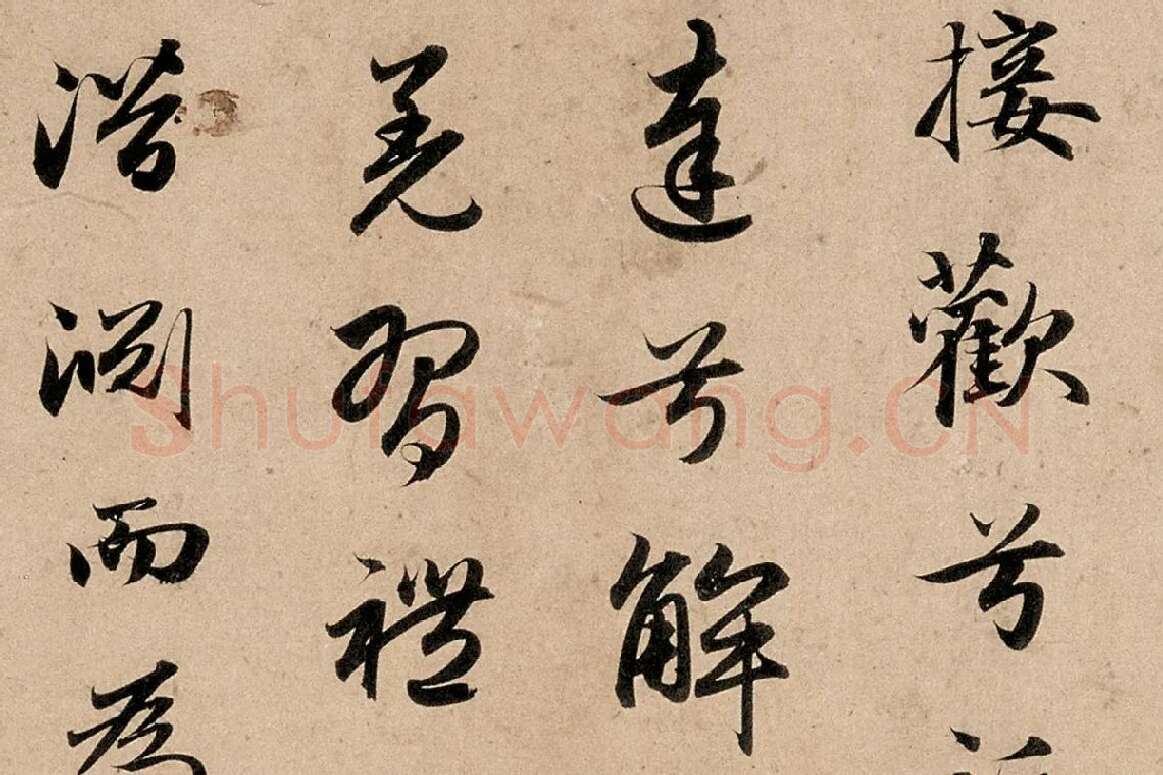 接歡兮
達兮解
羌習禮
潛淵而為
Shufawang.CN